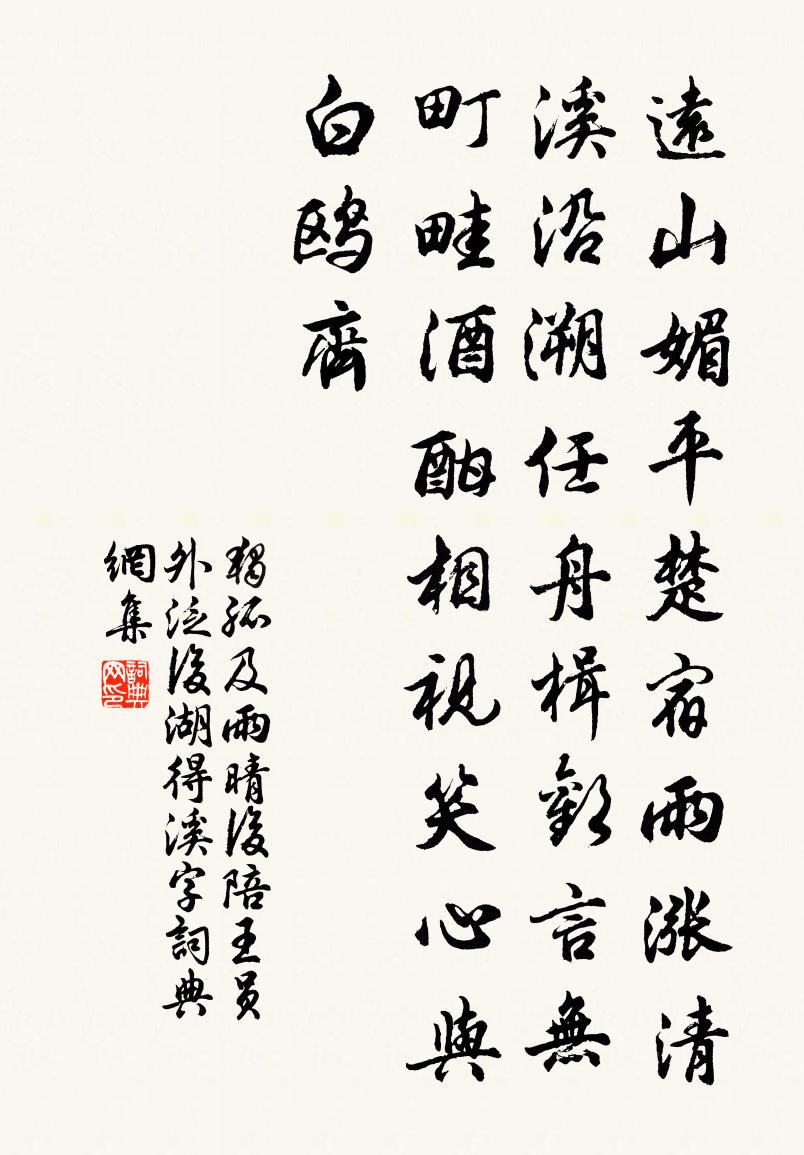 遠山媚平楚宿雨漲清
溪沿溯任舟楫歡言無
町畦酒酣相視笑心與
白鸥齊
獨孤及雨晴後陪王员
外泛後湖得溪字詞典
網集
詞典
网印